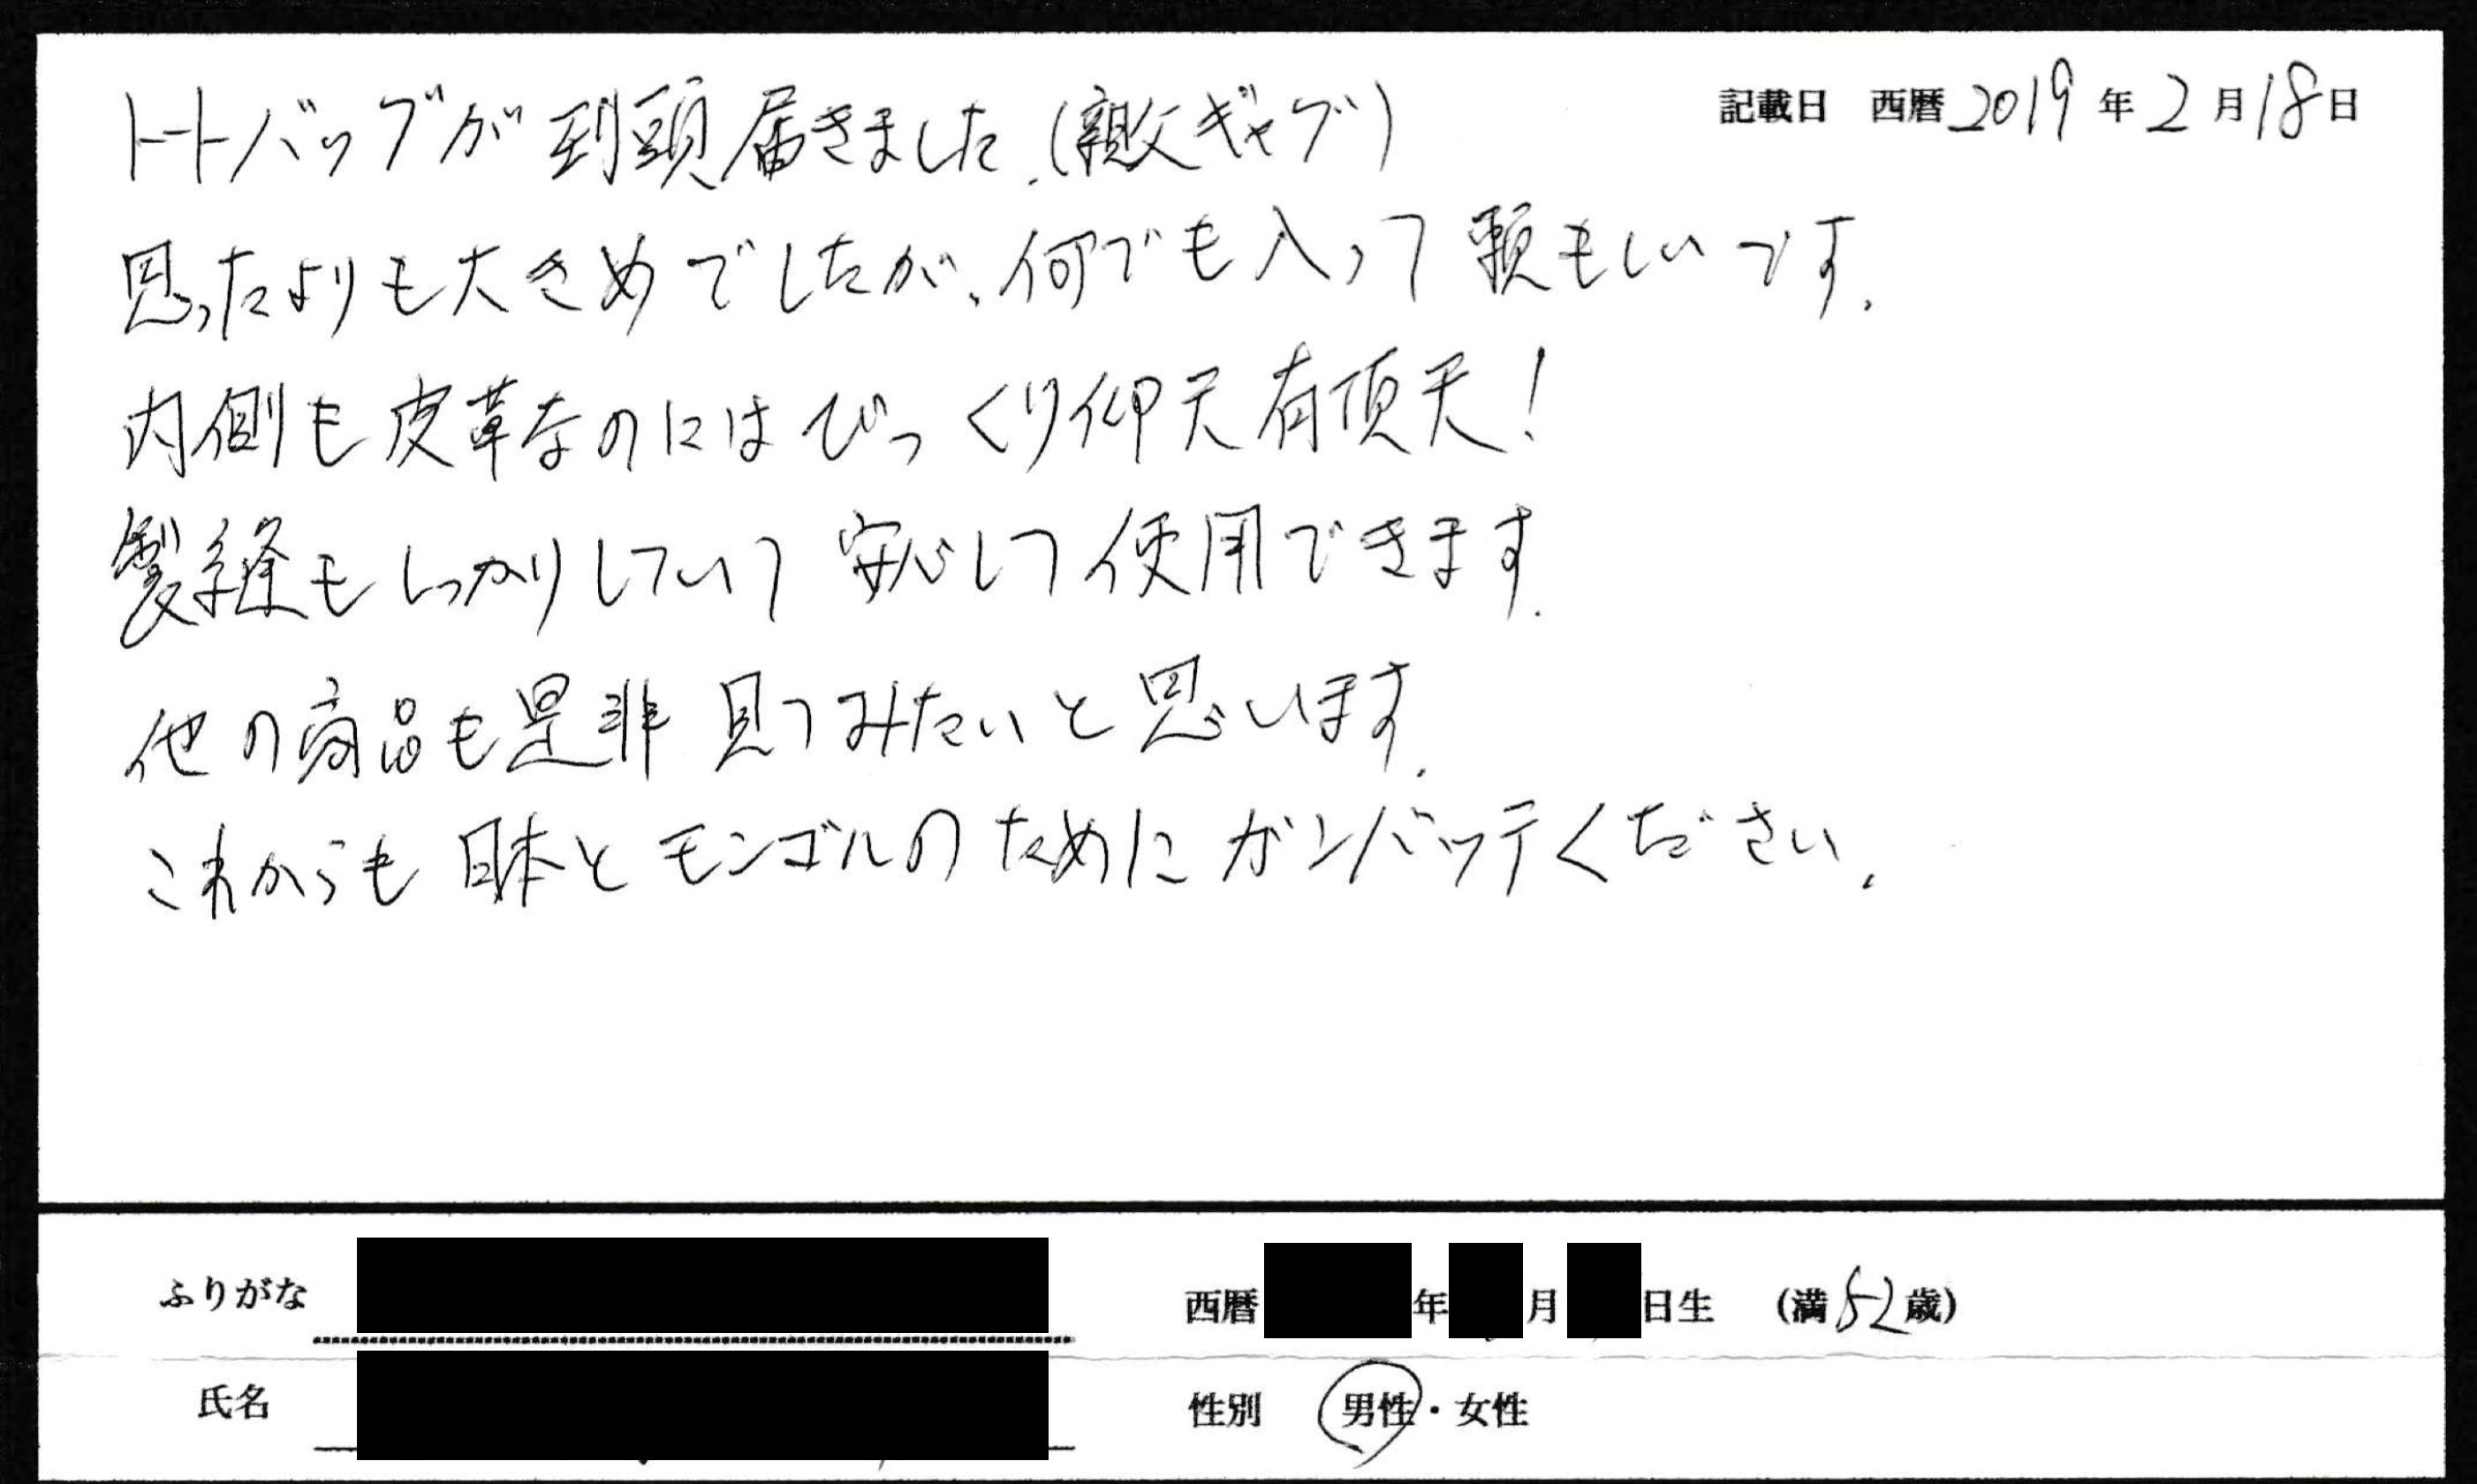 記載日 西暦2019年2月18日
トートバッグが到頭届きました.(親父ギャグ)
思ったよりも大きめでしたが、何でも入って頼もしいです.
内側も皮革なのにはびっくり仰天有頂天!
製縫もしっかりしていて安心して使用できます.
他の商品も是非見てみたいと思います.
これからも日本とモンゴルのためにガンバッテください.
ふりがな
西暦 年 月 日生 (満52歳)
氏名
性別 男性・女性